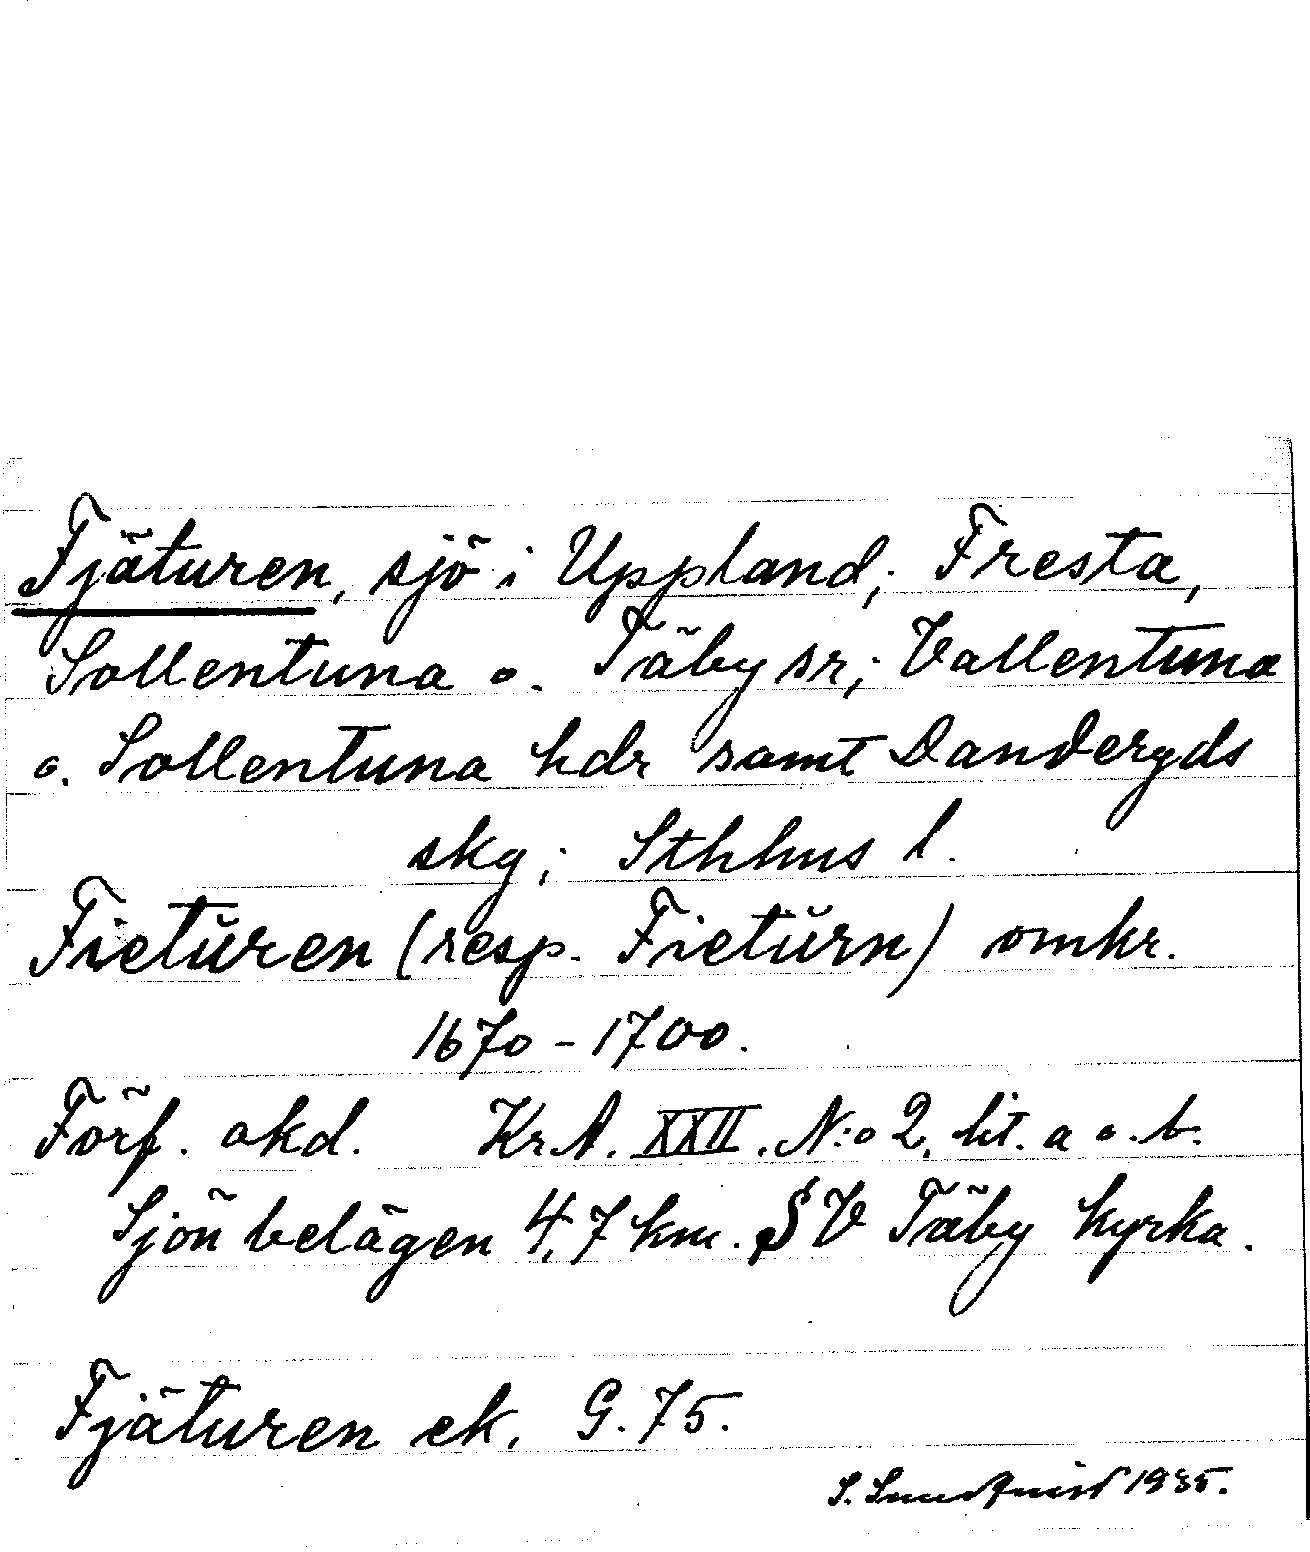 Fjäturen, sjö i Uppland; Fresta,
Sollentuna o. Täby sr; Vallentuna
o. Sollentuna hdr samt Danderyds
skg; Sthhus l.
Fietŭren (resp. Fietŭrn) omkr.
1670-1700.
Förf. okd. KrA. XXII. N:o 2. lit. a o. b.
Sjön belägen 4,7 km. SV Täby kyrka.
Fjäturen ek. G. 75.
S. 1935.